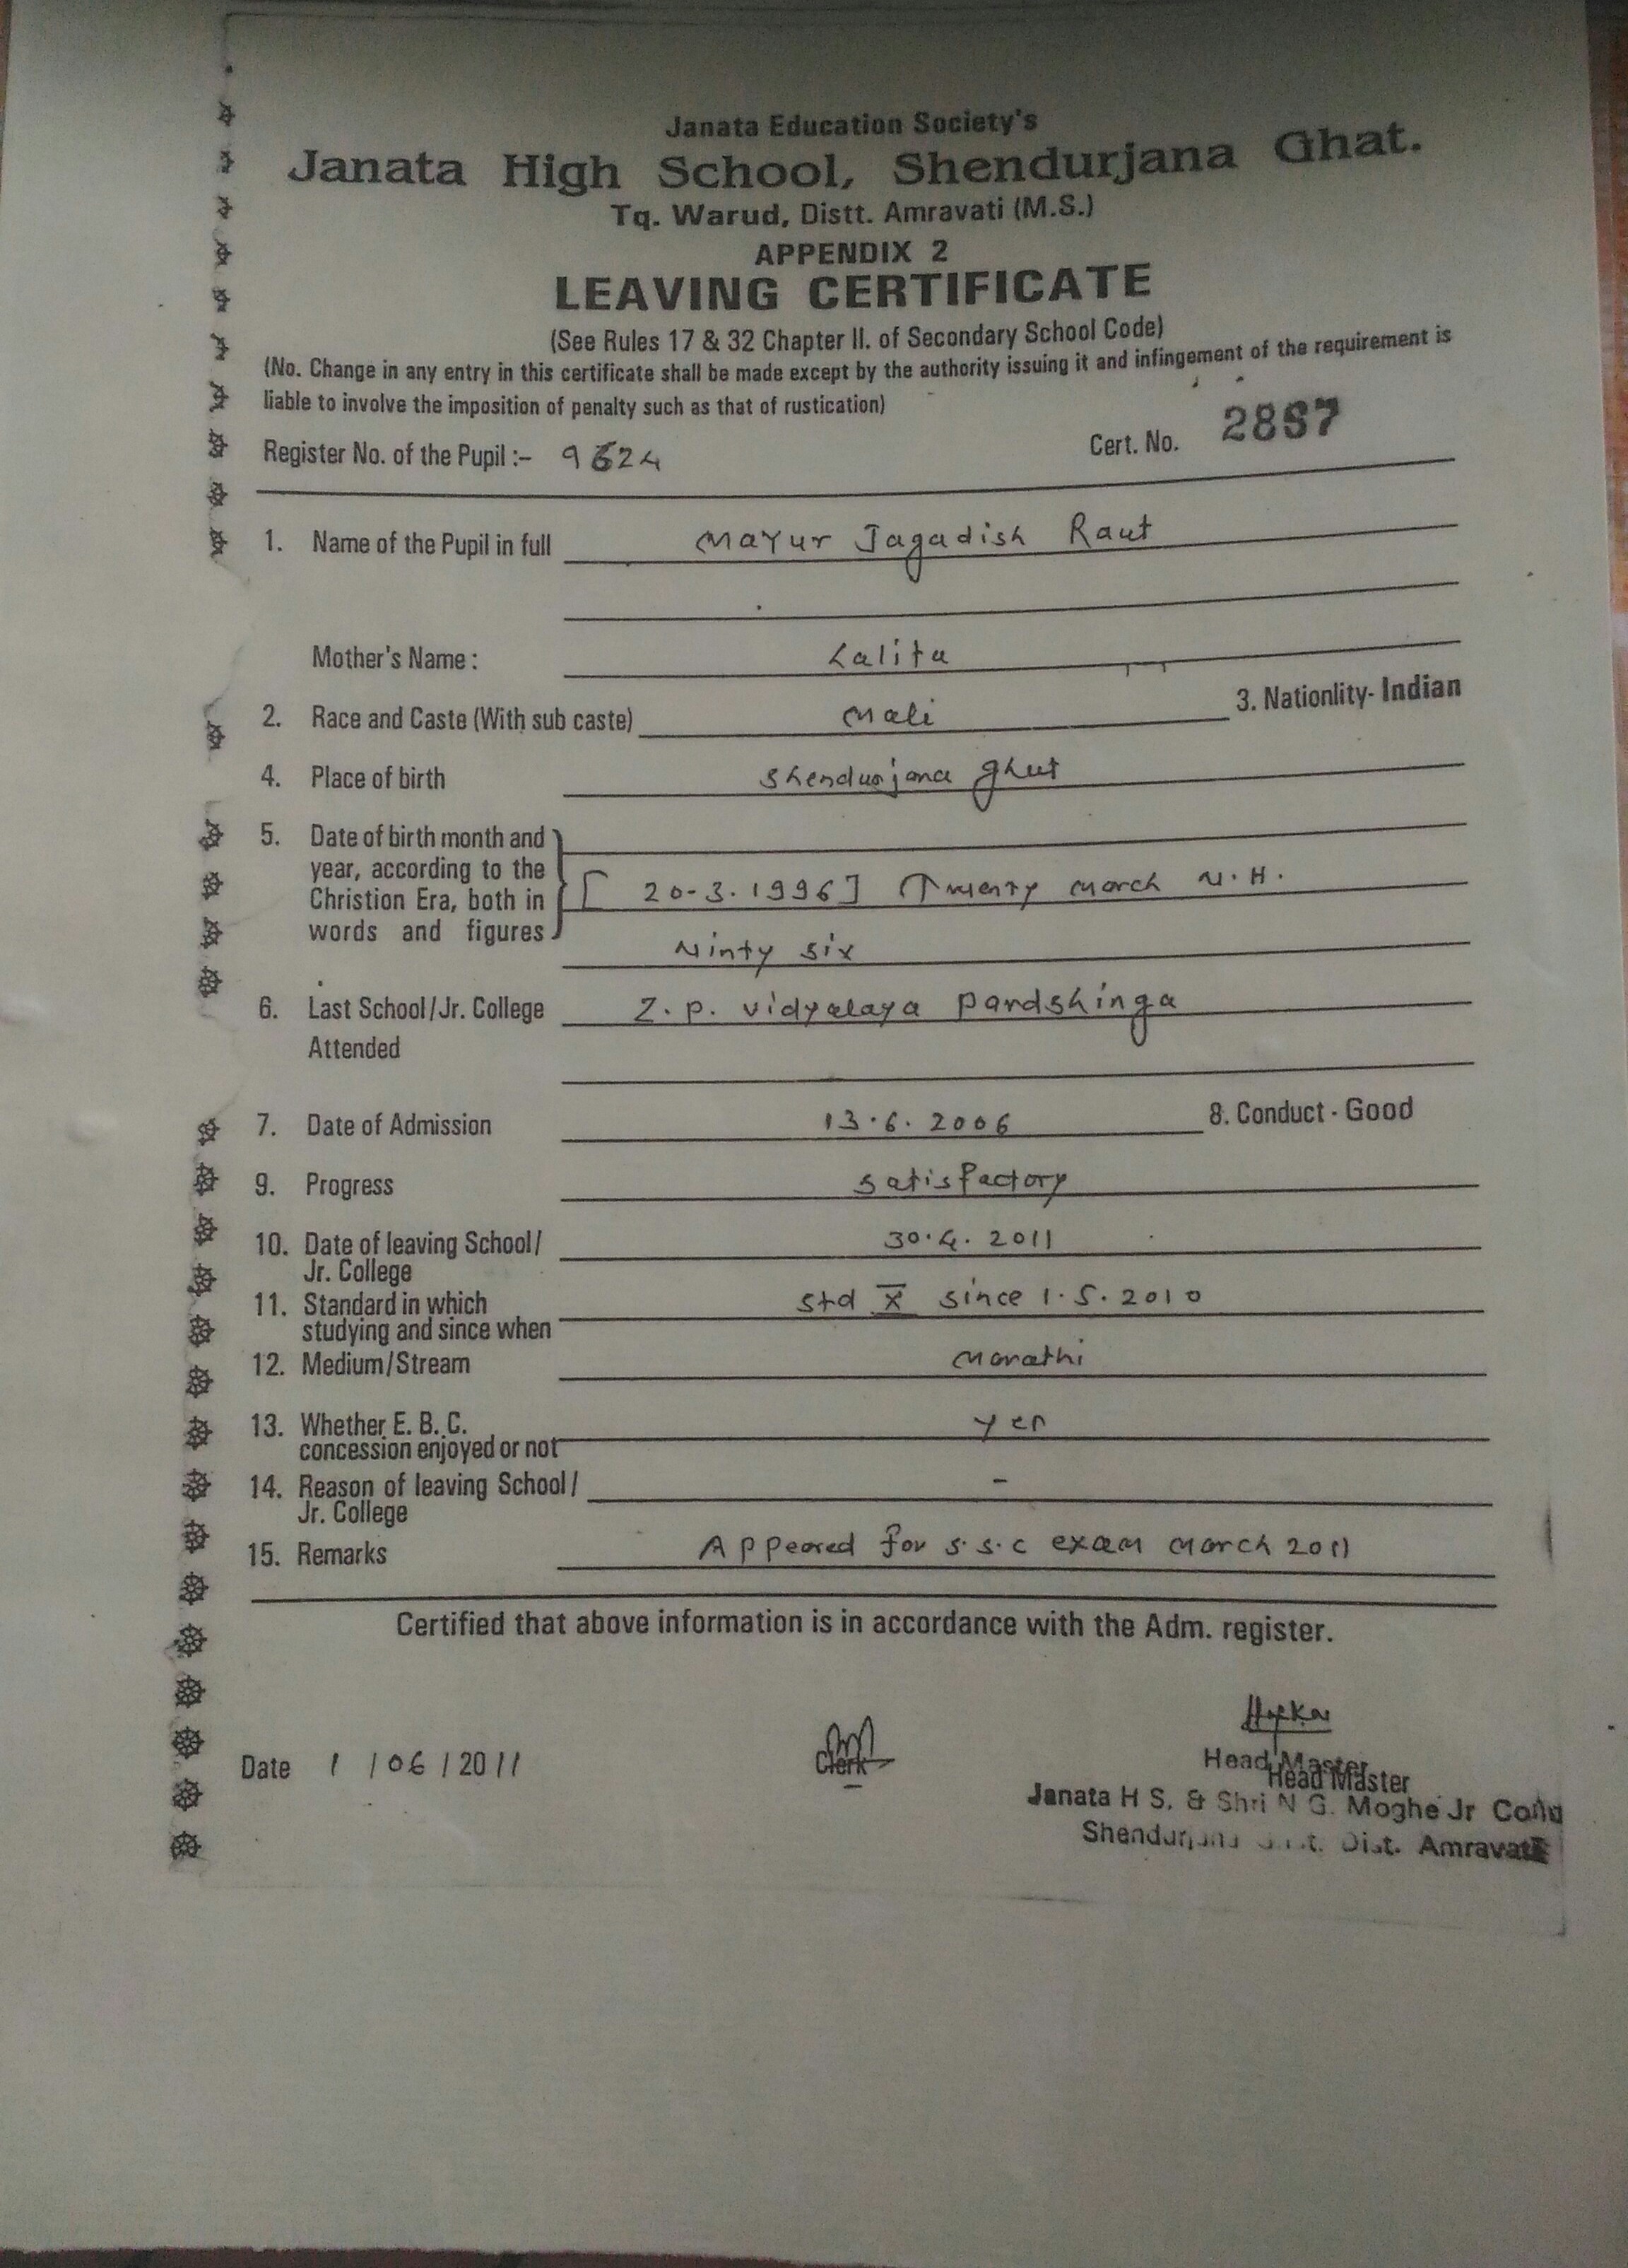 Janata Education Society's
Janata High School, Shendurjana Ghat.
Tq. Warud, Distt. Amravati (M.S.)
APPENDIX 2
LEAVING CERTIFICATE
(See Rules 17 & 32 Chapter II. of Secondary School Code)
(No. Change in any entry in this certificate shall be made except by the authority issuing it and infingement of the requirement is
liable to involve the imposition of penalty such as that of rustication)
Register No. of the Pupil :- 9624 Cert. No. 2887
1. Name of the Pupil in full Mayur Jagadish Raut
Mother's Name : Lalita
2. Race and Caste (With sub caste) Mali 3. Nationlity- Indian
4. Place of birth Shendurjana Ghat
5. Date of birth month and
year, according to the
Christion Era, both in [ 20-3.1996] (Twenty March N.H.
words and figures Ninty six
6. Last School/Jr. College Z.P. Vidyalaya Pardshinga
Attended
7. Date of Admission 13.6.2006 8. Conduct - Good
9. Progress Satisfactory
10. Date of leaving School/ 30.4.2011
Jr. College
11. Standard in which Std X since 1.5.2010
studying and since when
12. Medium/Stream Marathi
13. Whether E. B. C. Yes
concession enjoyed or not
14. Reason of leaving School/ -
Jr. College
15. Remarks Appeared for S.S.C exam March 2011
Certified that above information is in accordance with the Adm. register.
Date 1 /06/2011 Clerk Head Master
Head Master
Janata H S. & Shri N G. Moghe Jr
Dist. Amravati